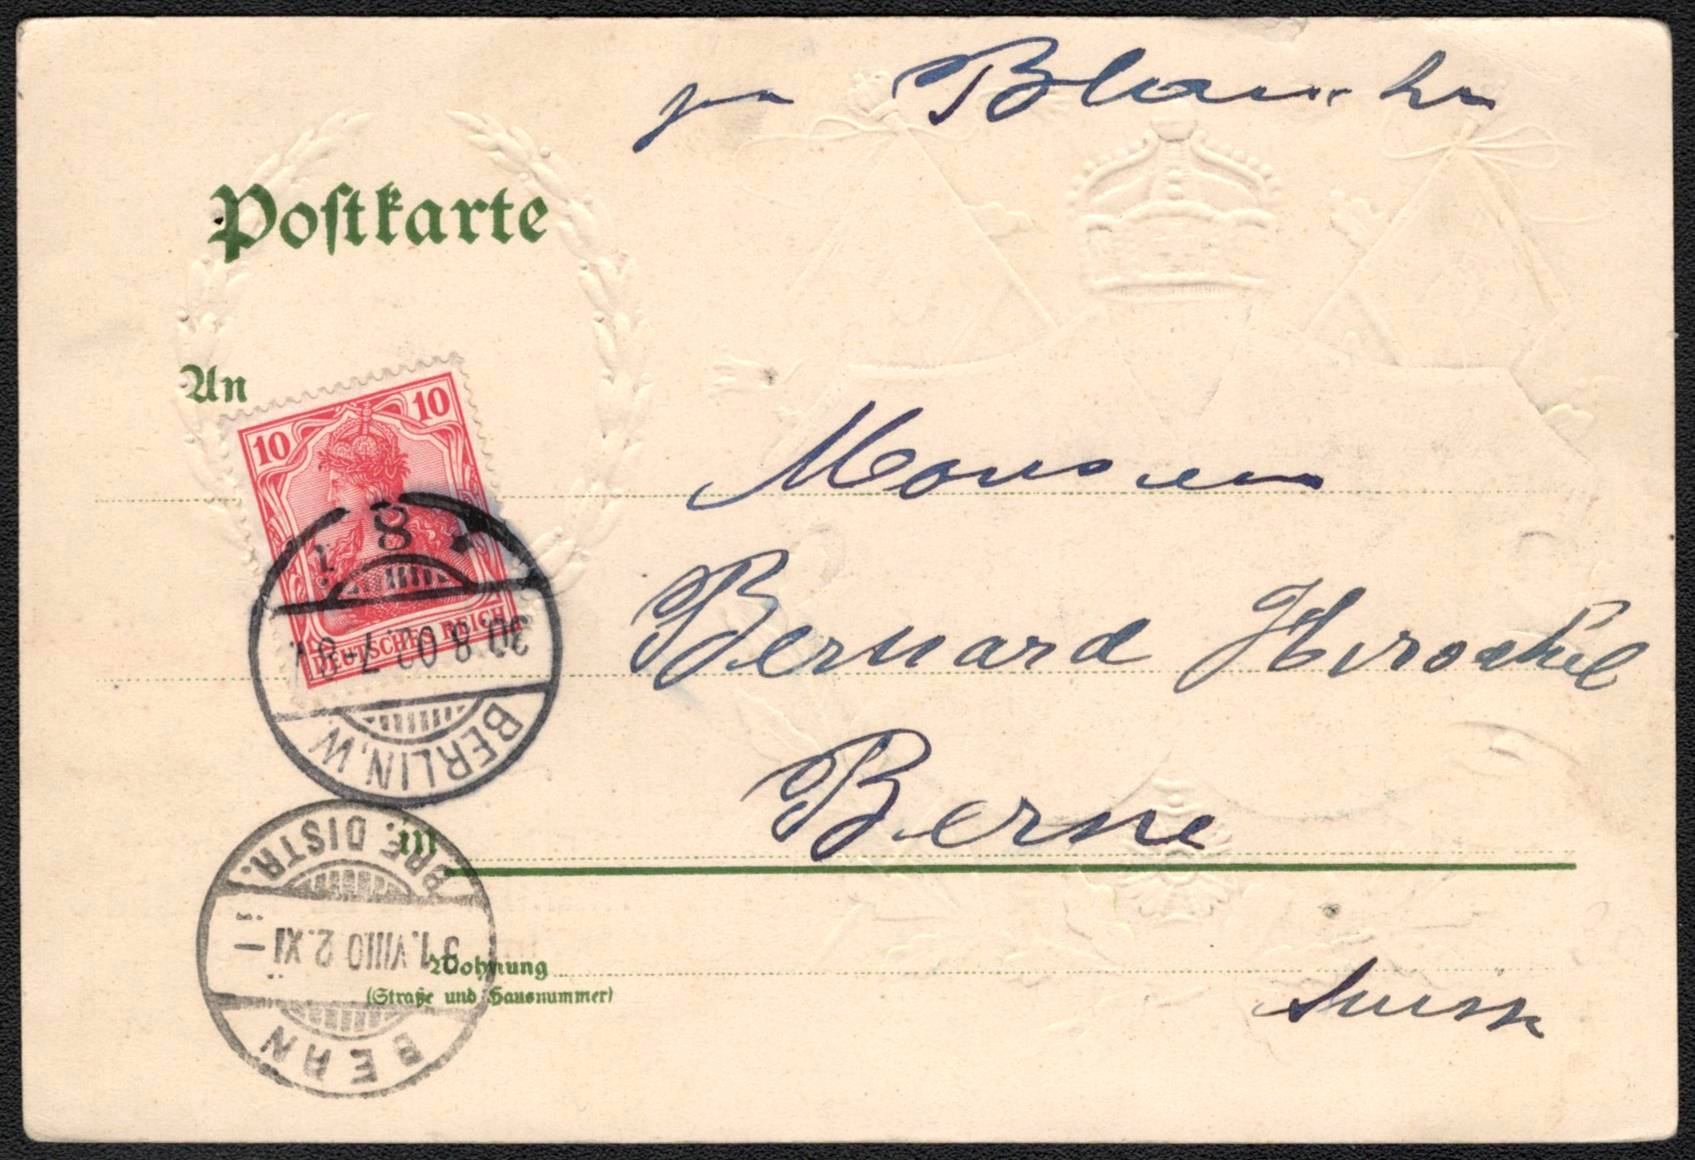 pr Blanche
Postkarte
An
10 10
DEUTSCHES REICH
8
30.8.02.7-8V.
BERLIN.W.
Monsieur
Bernard
Berne
in
BRF. DISTR.
31.VIII.02.XI-
BERN
Wohnung
(Straße und Hausnummer)
Suisse